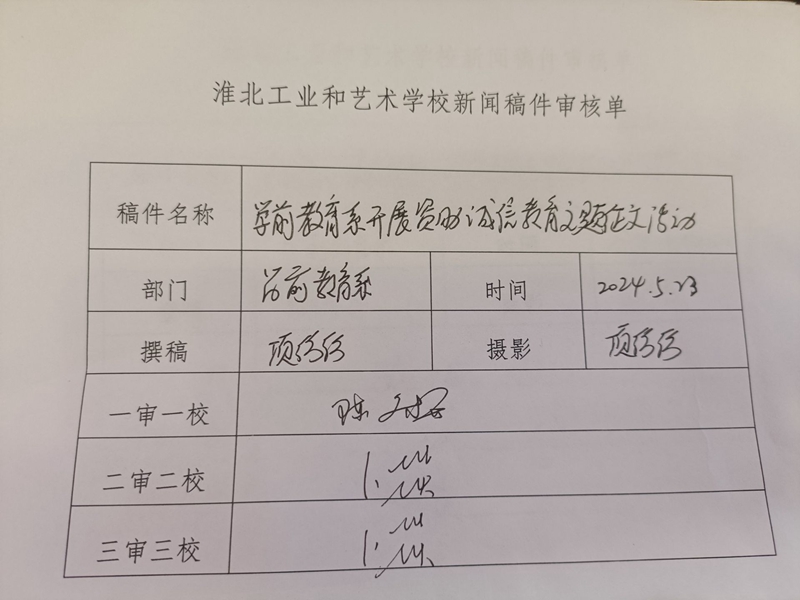 淮北工业和艺术学校新闻稿件审核单
稿件名称 学前教育系开展资助诚信教育主题征文活动
部门 学前教育系 时间 2024.5.23
撰稿 项 摄影 项
一审一校
二审二校
三审三校